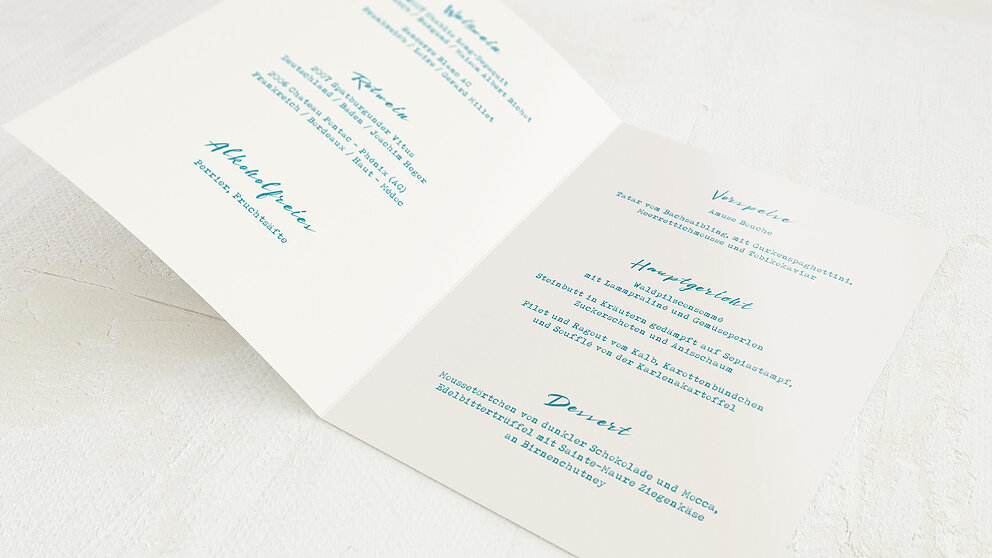 Weißwein
Maison Albert Bichot
Sancerre Blanc AC
Frankreich / Loire / Gerard Millet
Rotwein
2007 Spätburgunder Vitus
Deutschland / Baden / Joachim Heger
2006 Chateau Pontac - Phénix (AC)
Frankreich / Bordeaux / Haut - Médoc
Alkoholfreies
Perrier, Fruchtsäfte
Vorspeise
Amuse Bouche
Tatar vom Bachsaibling, mit Gurkenspaghettini,
Meerrettichmousse und Tobikokaviar
Hauptgericht
Waldpilzconsommé
mit Lammpraliné und Gemüseperlen
Steinbutt in Kräutern gedämpft auf Sepiastampf,
Zuckerschoten und Anisschaum
Filet und Ragout vom Kalb, Karottenbündchen
und Soufflé von der Karlenakartoffel
Dessert
Moussetörtchen von dunkler Schokolade und Mocca,
Edelbittertrüffel mit Sainte-Maure Ziegenkäse
an Birnenchutney